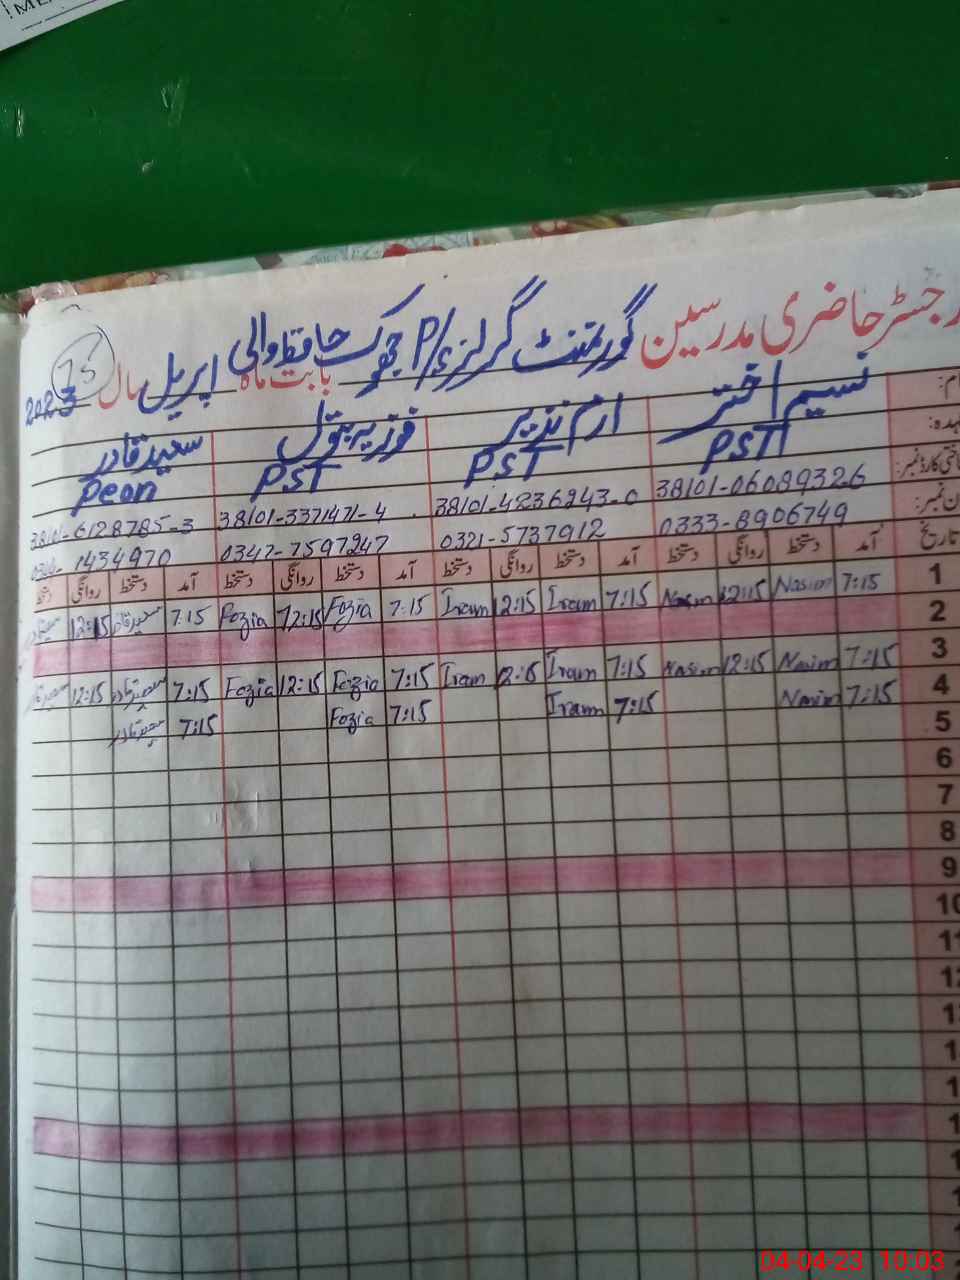 رجسٹر حاضری مدرسین گورنمنٹ گرلز P/ جھوک حافظ والی بابت ماہ اپریل سال 2023
75
نام: نسیم اختر ارم نذیر فوزیہ بتول سعید قادر
عہدہ: PST PST PST Peon
شناختی کارڈ نمبر: 38101-06089326 38101-4236243-0 38101-3371471-4 38101-6128785-3
فون نمبر: 0333-8906749 0321-5737912 0347-7597247 1434970
تاریخ آمد دستخط روانگی دستخط آمد دستخط روانگی دستخط آمد دستخط روانگی دستخط آمد دستخط روانگی دستخط
1 7:15 Nasim 12:15 Nasim 7:15 Iram 12:15 Iram 7:15 Fozia 12:15 Fozia 7:15 سعید قادر 12:15
2
3 7:15 Nasim 12:15 Nasim 7:15 Iram 12:15 Iram 7:15 Fozia 12:15 Fozia 7:15 سعید قادر 12:15
4 7:15 Nasim 7:15 Iram 7:15 Fozia 7:15 سعید قادر
5
6
7
8
9
10
11
04-04-23 10:03